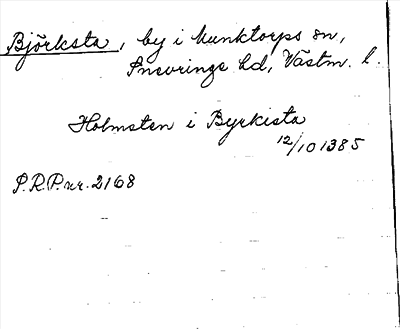 Björksta, by i Munktorps sn,
Snevringe hd, Västm. l.
Holmsten i Byrkista
12/10 1385
S.R.P. nr. 2168